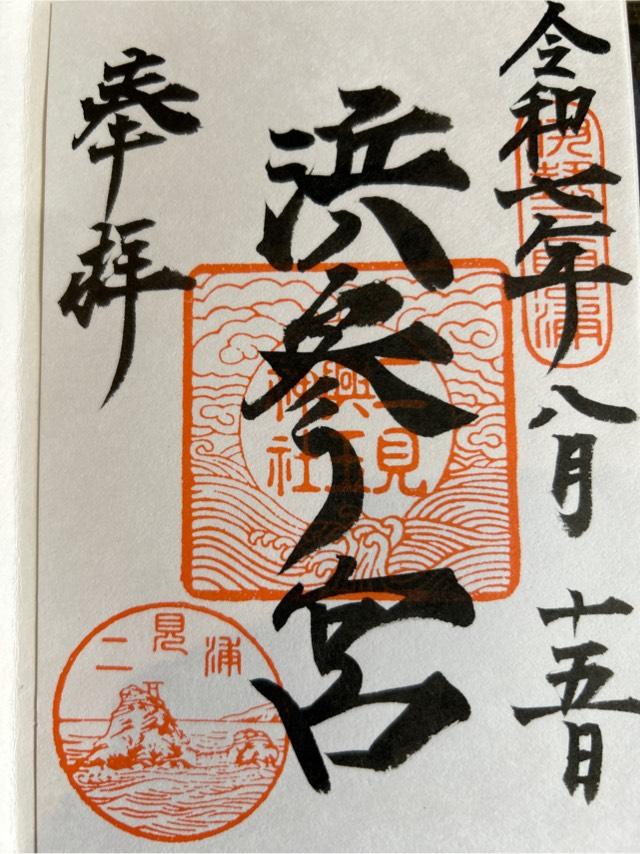 令和七年 八月 十五日
伊勢二見浦
浜参宮
二見
興玉
神社
奉拝
二見浦